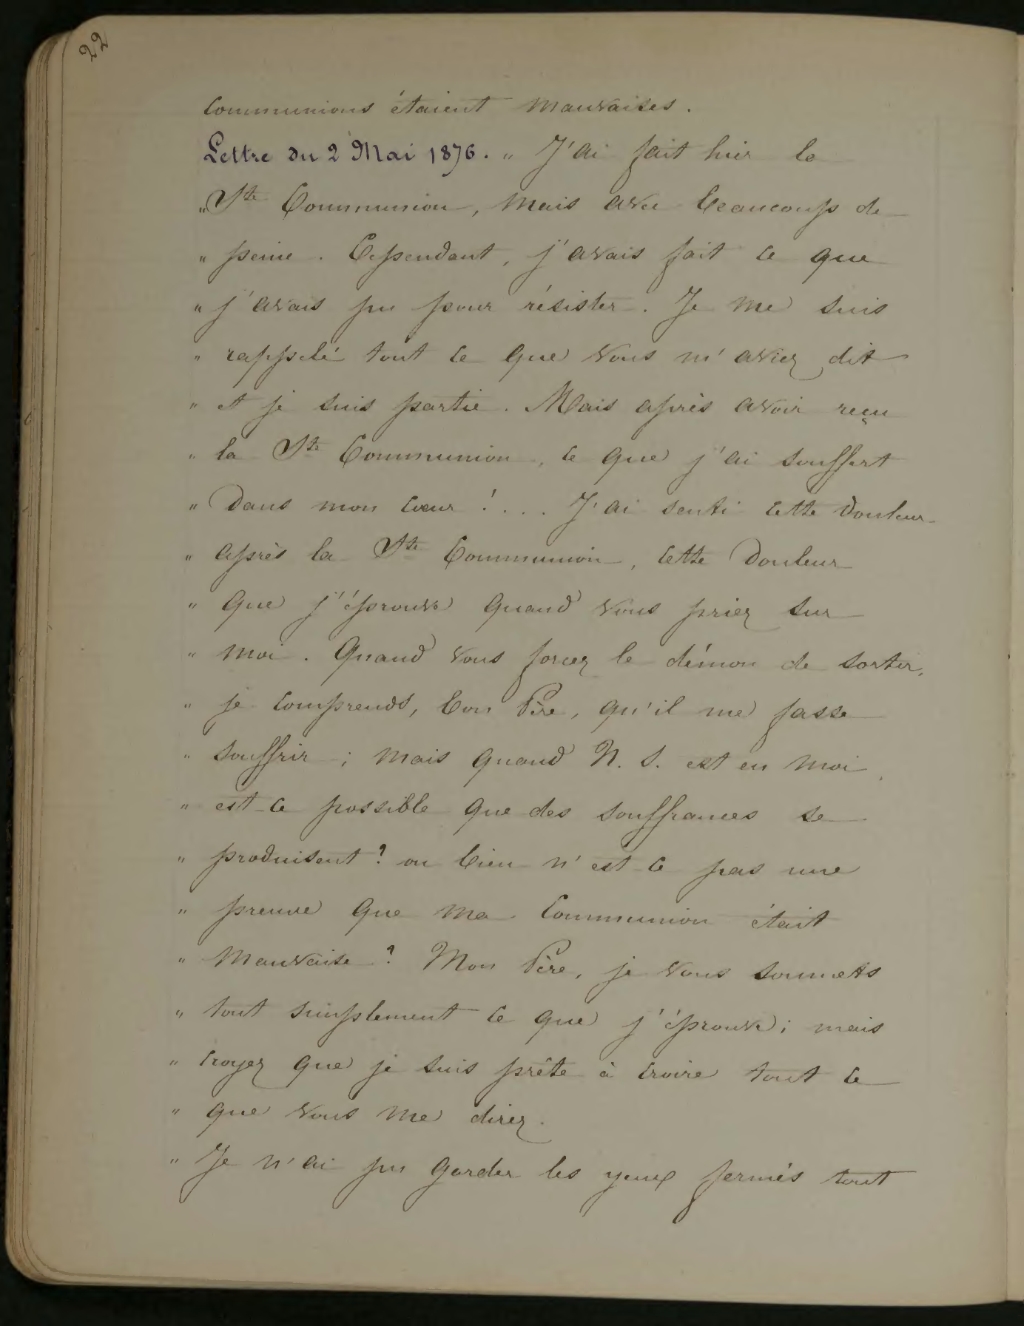 22
Communions étaient mauvaises.
Lettre du 2 Mai 1876. „ J'ai fait hier la
„ Ste Communion, mais avec beaucoup de
„ peine. Cependant, j'avais fait ce que
„ j'avais pu pour résister. Je me suis
„ rappelé tout ce que vous m'aviez dit
„ et je suis partie. Mais après avoir reçu
„ la Ste Communion, ce que j'ai souffert
„ dans mon cœur !... J'ai senti cette douleur
„ après la Ste Communion, cette douleur
„ que j'éprouve quand vous priez sur
„ moi. Quand vous forcez le démon de sortir,
„ je comprends, bon Père, qu'il me fasse
„ souffrir ; mais quand N. S. est en moi,
„ est-ce possible que des souffrances se
„ produisent ? ou bien n'est-ce pas une
„ preuve que ma Communion était
„ mauvaise ? Mon Père, je vous soumets
„ tout simplement ce que j'éprouve ; mais
„ croyez que je suis prête à croire tout ce
„ que vous me direz.
„ Je n'ai pu garder les yeux fermés tout